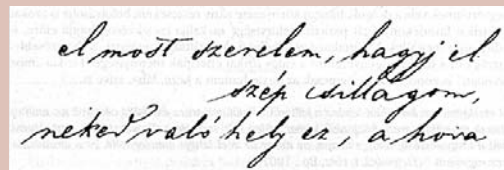 el most szerelem, hagyj el
szép csillagom,
neked való hely ez, a hova